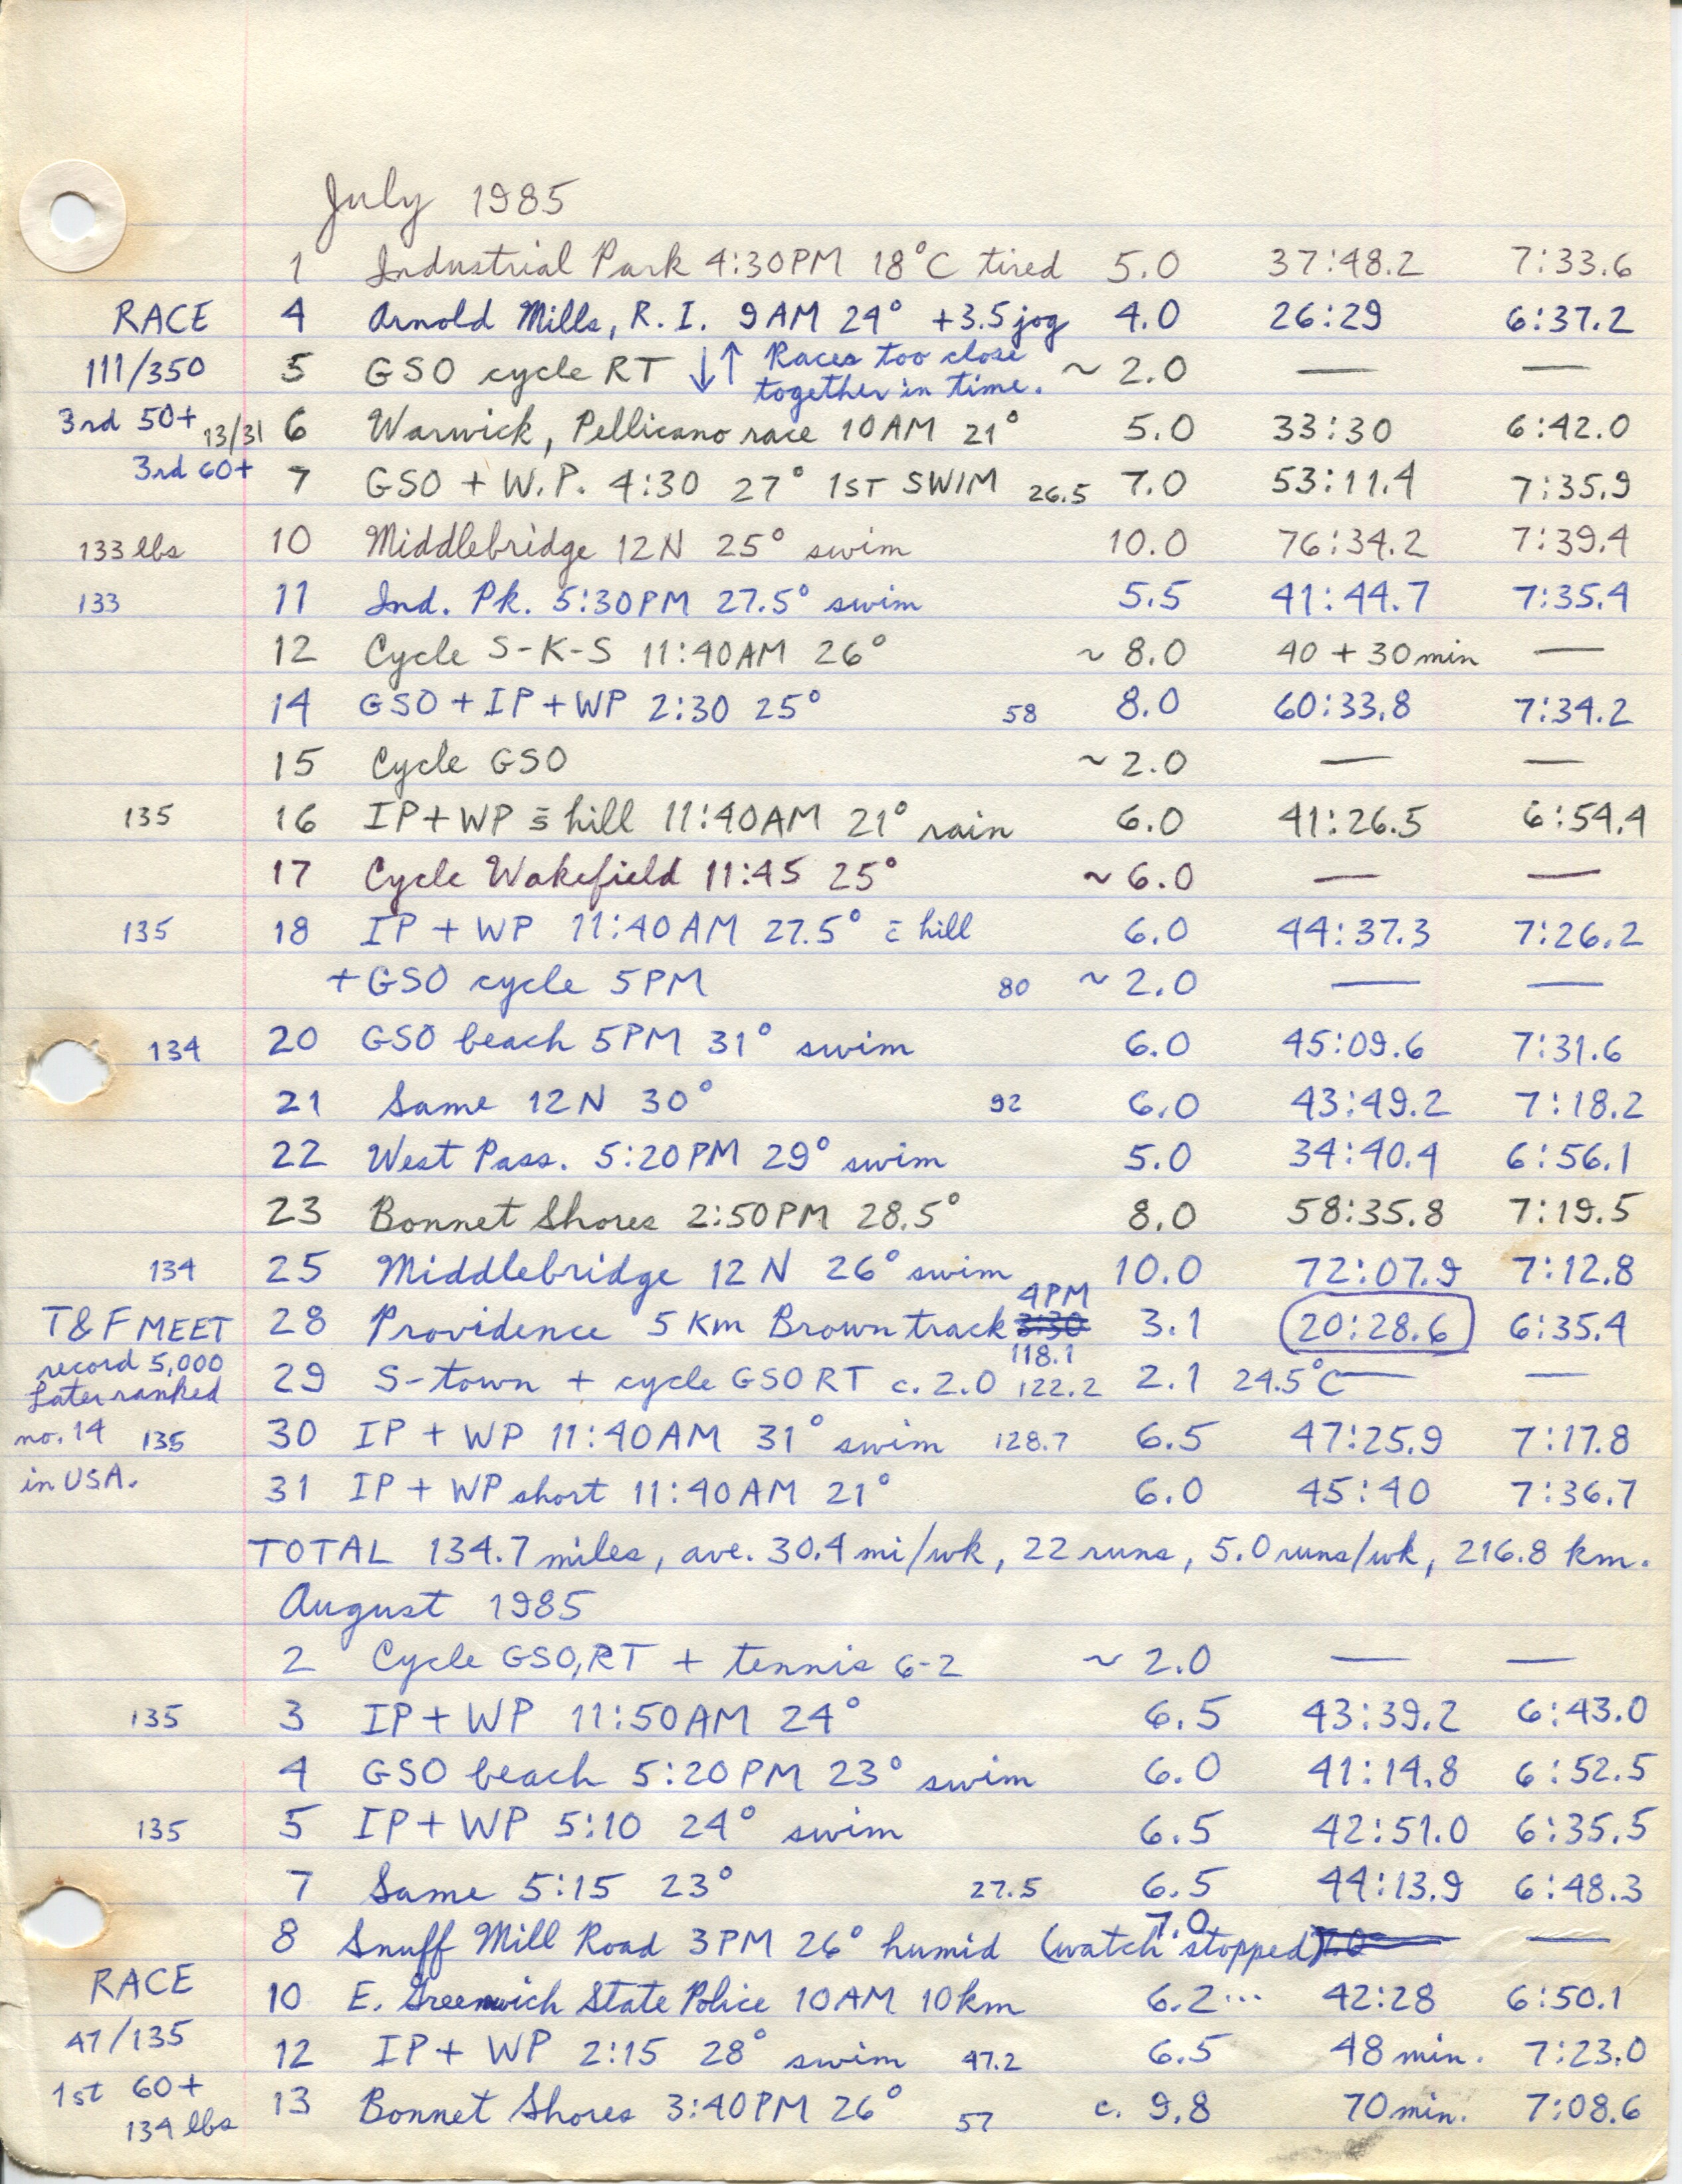 July 1985
1 Industrial Park 4:30PM 18°C tired 5.0 37:48.2 7:33.6
RACE 4 Arnold Mills, R.I. 9AM 24° +3.5 jog 4.0 26:29 6:37.2
111/350 5 GSO cycle RT ↓↑ Races too close together in time. ~2.0 — —
3rd 50+ 13/31 6 Warwick, Pellicano race 10AM 21° 5.0 33:30 6:42.0
3rd 60+ 7 GSO + W.P. 4:30 27° 1ST SWIM 26.5 7.0 53:11.4 7:35.9
133 lbs 10 Middlebridge 12N 25° swim 10.0 76:34.2 7:39.4
133 11 Ind. Pk. 5:30PM 27.5° swim 5.5 41:44.7 7:35.4
12 Cycle S-K-S 11:40AM 26° ~8.0 40 + 30 min —
14 GSO + IP + WP 2:30 25° 58 8.0 60:33.8 7:34.2
15 Cycle GSO ~2.0 — —
135 16 IP + WP s̄ hill 11:40AM 21° rain 6.0 41:26.5 6:54.4
17 Cycle Wakefield 11:45 25° ~6.0 — —
135 18 IP + WP 11:40AM 27.5° c̄ hill 6.0 44:37.3 7:26.2
+ GSO cycle 5PM 80 ~2.0 — —
134 20 GSO beach 5PM 31° swim 6.0 45:09.6 7:31.6
21 Same 12N 30° 92 6.0 43:49.2 7:18.2
22 West Pass. 5:20PM 29° swim 5.0 34:40.4 6:56.1
23 Bonnet Shores 2:50PM 28.5° 8.0 58:35.8 7:19.5
134 25 Middlebridge 12N 26° swim 10.0 72:07.9 7:12.8
T&F MEET 28 Providence 5 Km Brown track 3:30 4PM 3.1 20:28.6 6:35.4
record 5,000
Later ranked 29 S-town + cycle GSO RT c. 2.0 118.1 122.2 2.1 24.5°C — —
no. 14 135 30 IP + WP 11:40AM 31° swim 128.7 6.5 47:25.9 7:17.8
in USA. 31 IP + WP short 11:40AM 21° 6.0 45:40 7:36.7
TOTAL 134.7 miles, ave. 30.4 mi/wk, 22 runs, 5.0 runs/wk, 216.8 km.
August 1985
2 Cycle GSO, RT + tennis 6-2 ~2.0 — —
135 3 IP + WP 11:50AM 24° 6.5 43:39.2 6:43.0
4 GSO beach 5:20PM 23° swim 6.0 41:14.8 6:52.5
135 5 IP + WP 5:10 24° swim 6.5 42:51.0 6:35.5
7 Same 5:15 23° 27.5 6.5 44:13.9 6:48.3
8 Snuff Mill Road 3PM 26° humid (watch stopped) 7.0 7.0 —
RACE 10 E. Greenwich State Police 10AM 10km 6.2... 42:28 6:50.1
47/135 12 IP + WP 2:15 28° swim 47.2 6.5 48 min. 7:23.0
1st 60+ 13 Bonnet Shores 3:40PM 26° 57 c. 9.8 70 min. 7:08.6
134 lbs